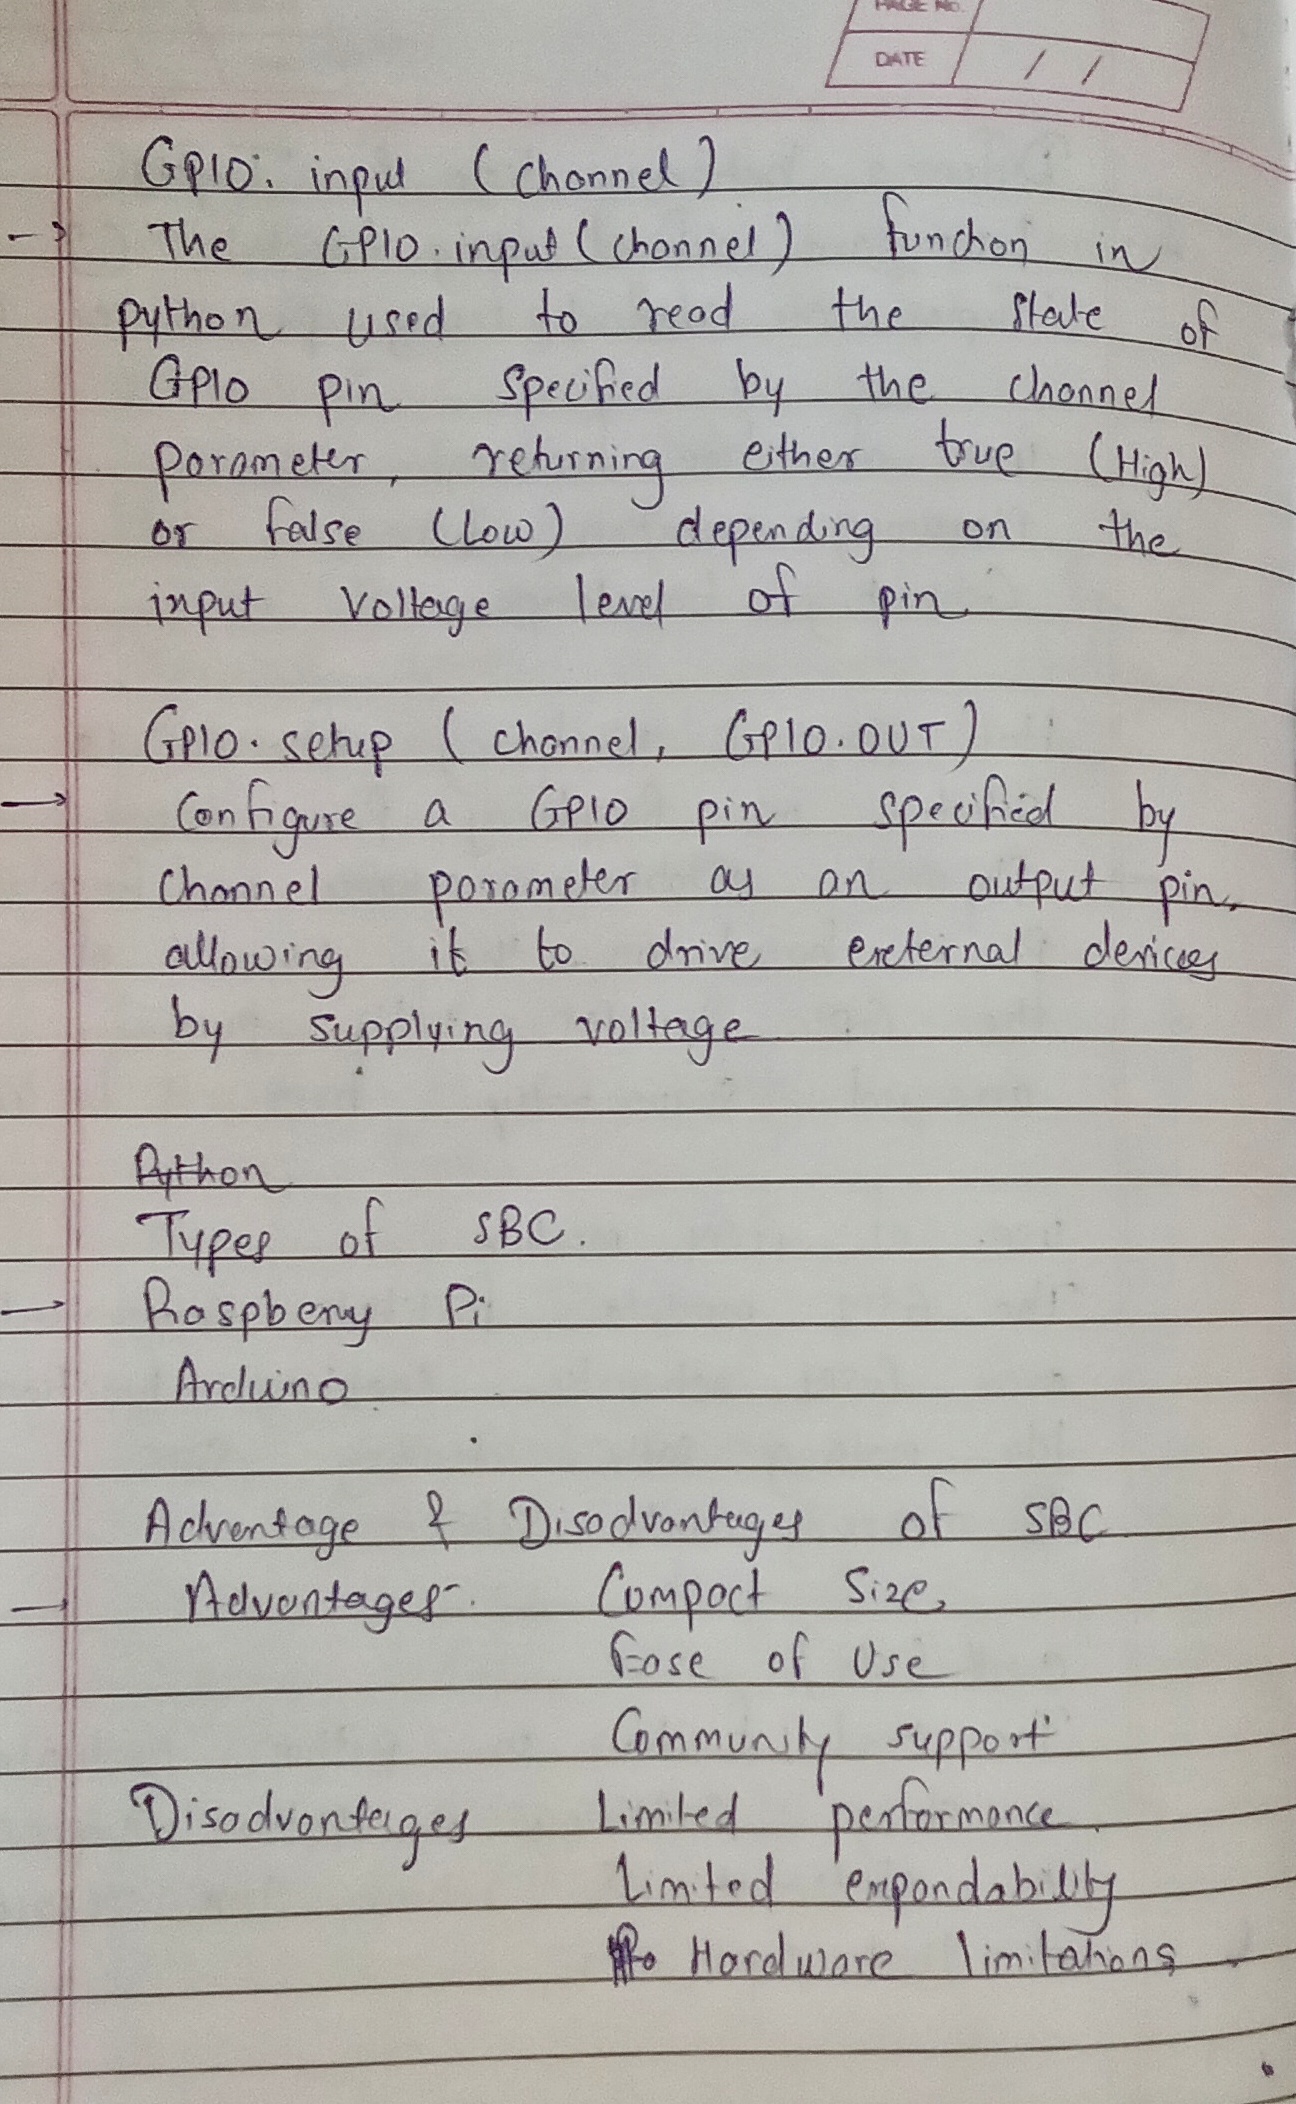 PAGE No.
DATE / /
GPIO. input (channel)
→ The GPIO.input (channel) function in
python used to read the state of
GPIO pin specified by the channel
parameter, returning either true (High)
or false (Low) depending on the
input voltage level of pin
GPIO.setup (channel, GPIO.OUT)
→ Configure a GPIO pin specified by
channel parameter as an output pin,
allowing it to drive external devices
by supplying voltage
Python
Types of SBC.
→ Raspberry Pi
Arduino
Advantage & Disadvantages of SBC
→ Advantages - Compact Size,
Ease of Use
Community support
Disadvantages Limited performance.
Limited expandability
Hardware limitations